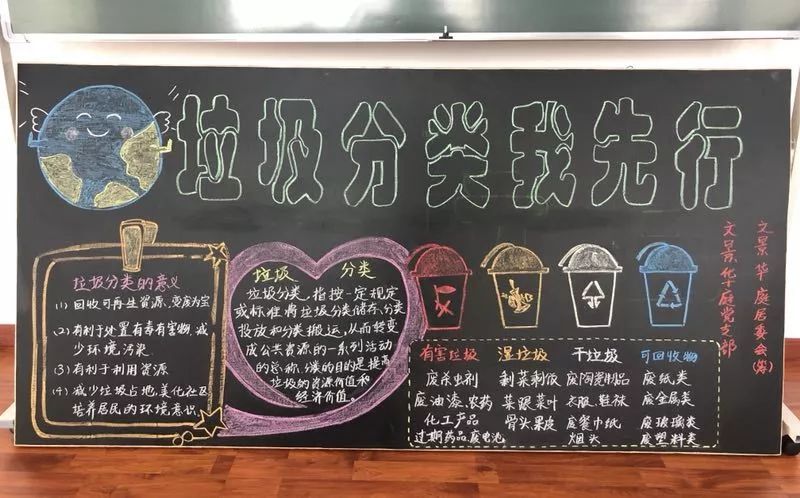 垃圾分类我先行
垃圾分类的意义
(1) 回收可再生资源、变废为宝
(2) 有利于处置有毒有害物,减
少环境,污染
(3) 有利于利用资源
(4) 减少垃圾占地,美化社区
培养居民的环境意识
垃圾 分类
垃圾分类,指按一定规定
或标准将垃圾分类储存、分类
投放和分类搬运,从而转变
成公共资源的一系列活动
的总称,分类的目的是提高
垃圾的资源价值和
经济价值。
有害垃圾 湿垃圾 干垃圾 可回收物
废杀虫剂 剩菜剩饭 废陶瓷制品 废纸类
废油漆、农药 菜跟菜叶 衣服、鞋袜 废金属类
化工产品 骨头果皮 废餐巾纸 废玻璃类
过期药品,废电池 烟头 废塑料类
文景华庭居委会(筹)
文景华庭党支部